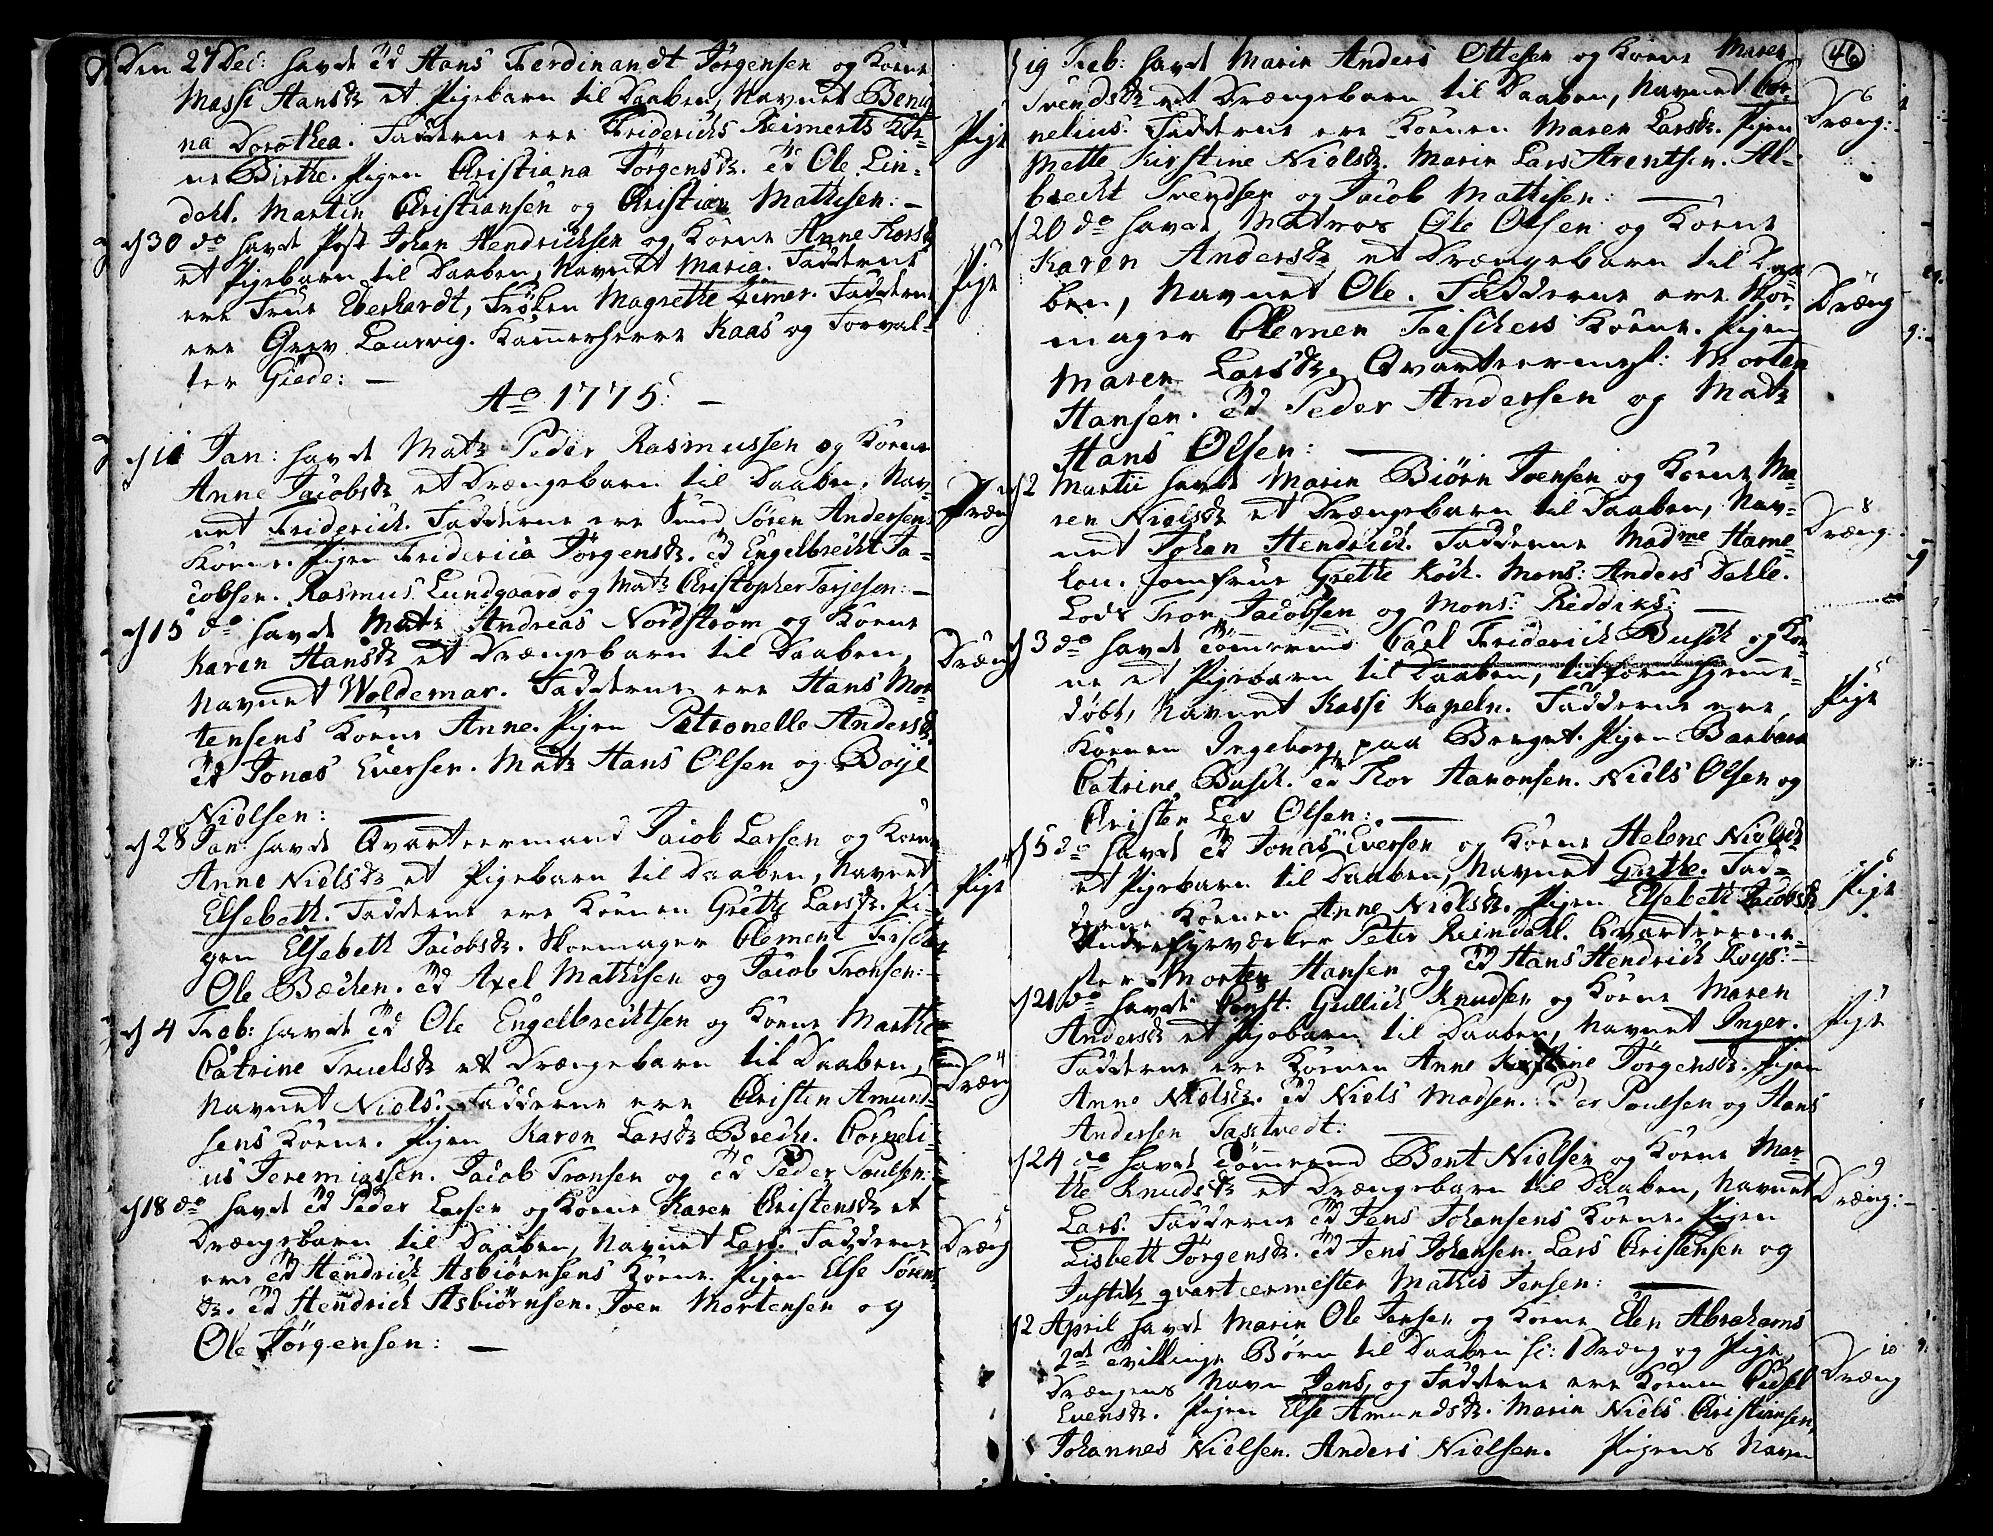 Den 27 Dec: havde Ed Hans Ferdinandt Jørgensen og Kone
Massi Hansdr et Pigebarn til Daaben, Navnet Beng-
na Dorothea. Fadderne ere Friderichs Reimerts Ko-
ne Birthe. Pigen Christiana Jørgensdr. Ed Ole Lin-
dahl. Martin Christiansen og Christian Mathisen: —
d 30 do havde Post Johan Hendrichsen og Kone Anne Thorsdr
et Pigebarn til Daaben, Navnet Maria. Fadderne
ere Frue Eberhardt, Frøken Magrethe Zimer. Fadderne
ere Grev Laurvig. Kamerherre Kaas og Forval-
ter Giede: —
Ao 1775: —
d 11 Jan: havde Matr Peder Rasmussen og Kone
Anne Jacobsdr et Drængebarn til Daaben, Nav-
net Friderich. Fadderne ere Smed Søren Andersens
Kone. Pigen Friderica Jørgensdr. Ed Engelbrecht Ja-
cobsen. Rasmus Lundgaard og Matr Christopher Terjeson: —
d 15 do havde Matr Andreas Nordstrøm og Kone
Karen Hansdr et Drængebarn til Daaben,
Navnet Woldemar. Fadderne ere Hans Mor-
tensens Kone Anne. Pigen Petronelle Andersdr.
Ed Jonas Eversen. Matr Hans Olsen og Boye
Nielsen: —
d 28 Jan: havde Qvarteermand Jacob Larsen og Kone
Anne Nielsdr et Pigebarn til Daaben, Navnet
Elsebeth. Fadderne ere Konen Grethe Larsdr. Pi-
gen Elsebeth Jacobsdr. Skoemager Clement Fischer
Ole Bæcken. Ed Axel Mathisen og Jacob Tronsen: —
d 4 Feb: havde Ed Ole Engelbrechtsen og Kone Marthe
Catrine Truelsdr et Drængebarn til Daaben,
Navnet Niels. Fadderne ere Christen Amund-
sens Kone. Pigen Karen Larsdr Breche. Corneli-
us Jeremiassen. Jacob Tronsen og Ed Peder Poulsen:
d 18 do havde Ed Peder Larsen og Kone Karen Christensdr et
Drængebarn til Daaben, Navnet Lars. Fadderne
ere Ed Hendrich Asbiørnsens Kone. Pigen Else Sørens-
dr. Ed Hendrich Asbiørnsen. Joen Mortensen og
Ole Jørgensen: —
Pige
3
Pige
Dræng
Dræng
4
Pige
4
Dræng
5
Dræng
46
d 19 Feb: havde Marin Anders Ottesen og Kone Maren
Svendsdr et Drængebarn til Daaben, Navnet Cor-
nelius. Fadderne ere Konen Maren Larsdr. Pigen
Mette Kirstine Nielsdr. Marin Lars Arentsen. Al-
brecht Svendsen og Jacob Mathisen: —
d 20 do havde Matros Ole Olsen og Kone
Karen Andersdr et Drængebarn til Daa-
ben, Navnet Ole. Fadderne ere Skoe-
mager Clemen Fischers Kone. Pigen
Maren Larsdr. Qvarteermest: Morten
Hansen. Ed Peder Andersen og Matr
Hans Olsen: —
d 2 Martii havde Marin Biørn Svensen og Kone Ma-
ren Nielsdr et Drængebarn til Daaben, Nav-
net Johan Hendrich. Fadderne Madme Hame-
lou. Jomfrue Grethe Koch. Mons: Anders Dahle.
Lods Tron Jacobsen og Mons: Riddiks: —
d 3 do havde Tømmermd Carl Friderich Busch og Ko-
ne et Pigebarn til Daaben, tilforn hjemme-
døbt, Navnet Kassi Kapeln. Fadderne ere
Konen Ingeborg paa Berget. Pigen Barbara
Catrine Busch. Ed Thor Aanonsen. Niels Olsen og
Christen Lev Olsen: —
d 5 do havde Ed Jonas Eversen og Kone Helene Nielsdr
et Pigebarn til Daaben, Navnet Grethe. Fad-
derne Konen Anne Nielsdr. Pigen Elsebeth Jacobsdr
Underfyrværker Peter Reindahl. Qvarteerme-
ster Morten Hansen og Ed Hans Hendrich Roys: —
d 21 do havde Const. Gullich Knudsen og Kone Maren
Andersdr et Pigebarn til Daaben, Navnet Inger.
Fadderne ere Konen Anne Kirstine Jørgensdr. Pigen
Anne Nielsdr. Ed Niels Madsen. Per Poulsen og Hans
Andersen Tastvedt: —
d 24 do havde Tømmermd Bent Nielsen og Kone Mar-
the Knudsdr et Drængebarn til Daaben, Navnet
Lars. Fadderne Ed Jens Johansens Kone. Pigen
Lisbett Jørgensdr. Ed Jens Johansen. Lars Christensen og
Justitz qvarteermester Mathis Jensen: —
d 2 April havde Marin Ole Jensen og Kone Elen Abrahams
2de Tvillinge Børn til Daaben sc: 1 Dræng og Pige,
Drængens Navn Jens, og Fadderne ere Konen Cidsel
Evensdr. Pigen Else Amundsdr. Marin Niels Christiansen,
Johannes Nielsen. Anders Nielsen. Pigens Navn
6
Dræng:
7
Dræng
8
Dræng.
5
Pige
6
Pige
7
Pige
9
Dræng:
10
Dræng